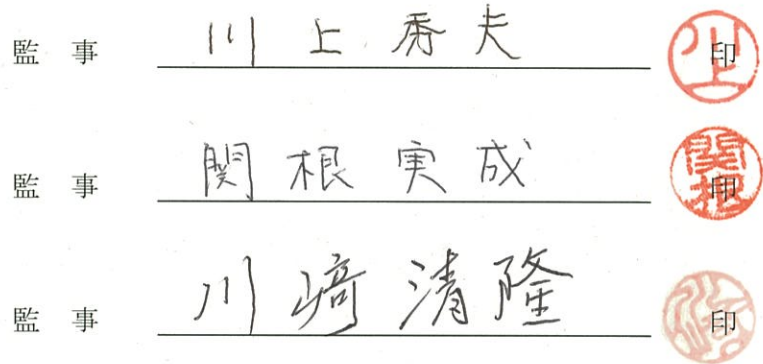 監事 川上秀夫 印
監事 関根実成 印
監事 川﨑清隆 印